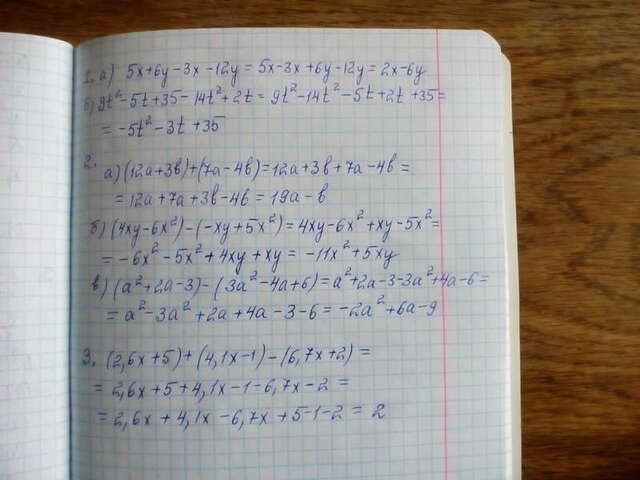 1. а) 5x+6y-3x-12y = 5x-3x+6y-12y = 2x-6y
б) 9t²-5t+35-14t²+2t = 9t²-14t²-5t+2t+35=
= -5t²-3t+35
2. а) (12a+3b)+(7a-4b)=12a+3b+7a-4b=
= 12a+7a+3b-4b = 19a-b
б) (4xy-6x²)-(-xy+5x²)=4xy-6x²+xy-5x²=
= -6x²-5x²+4xy+xy = -11x²+5xy
в) (a²+2a-3)-(3a²-4a+6)=a²+2a-3-3a²+4a-6=
= a²-3a²+2a+4a-3-6= -2a²+6a-9
3. (2,6x+5)+(4,1x-1)-(6,7x+2)=
= 2,6x+5+4,1x-1-6,7x-2 =
= 2,6x+4,1x-6,7x+5-1-2 = 2